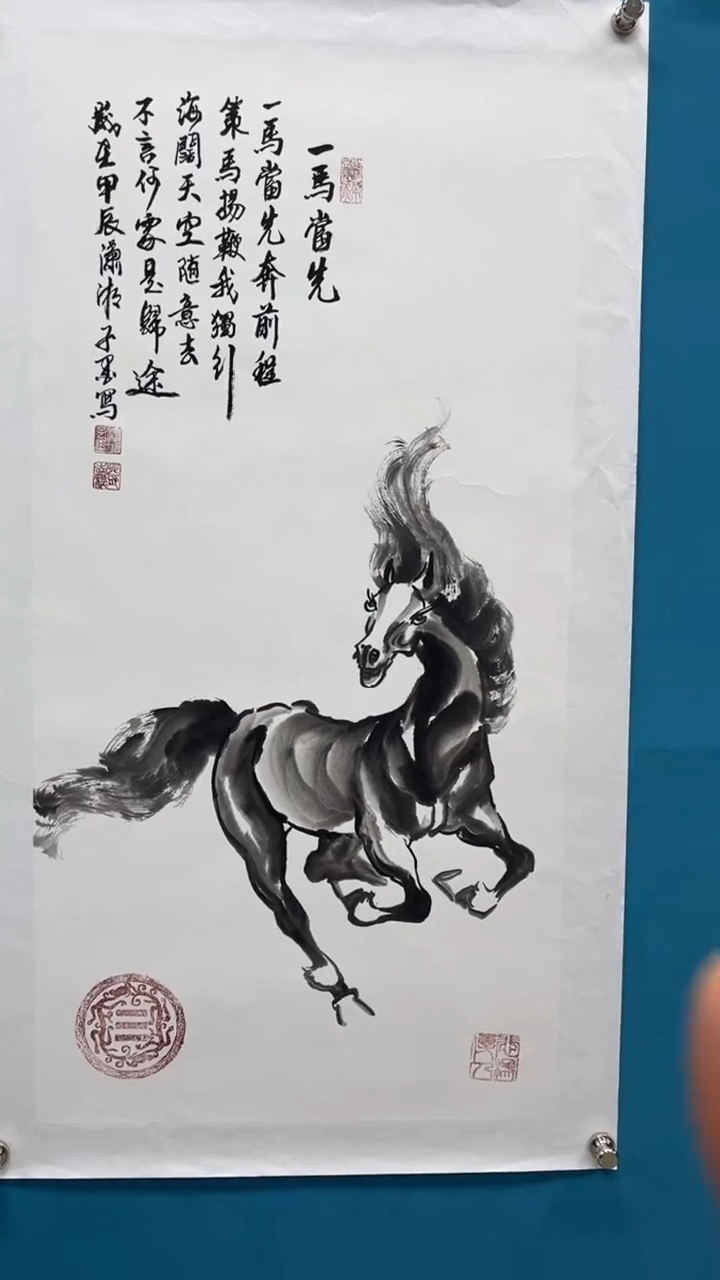 一馬當先
一馬當先奔前程
策馬揚鞭我獨行
海闊天空隨意去
不言何處是歸途
歲在甲辰瀟湘子墨寫